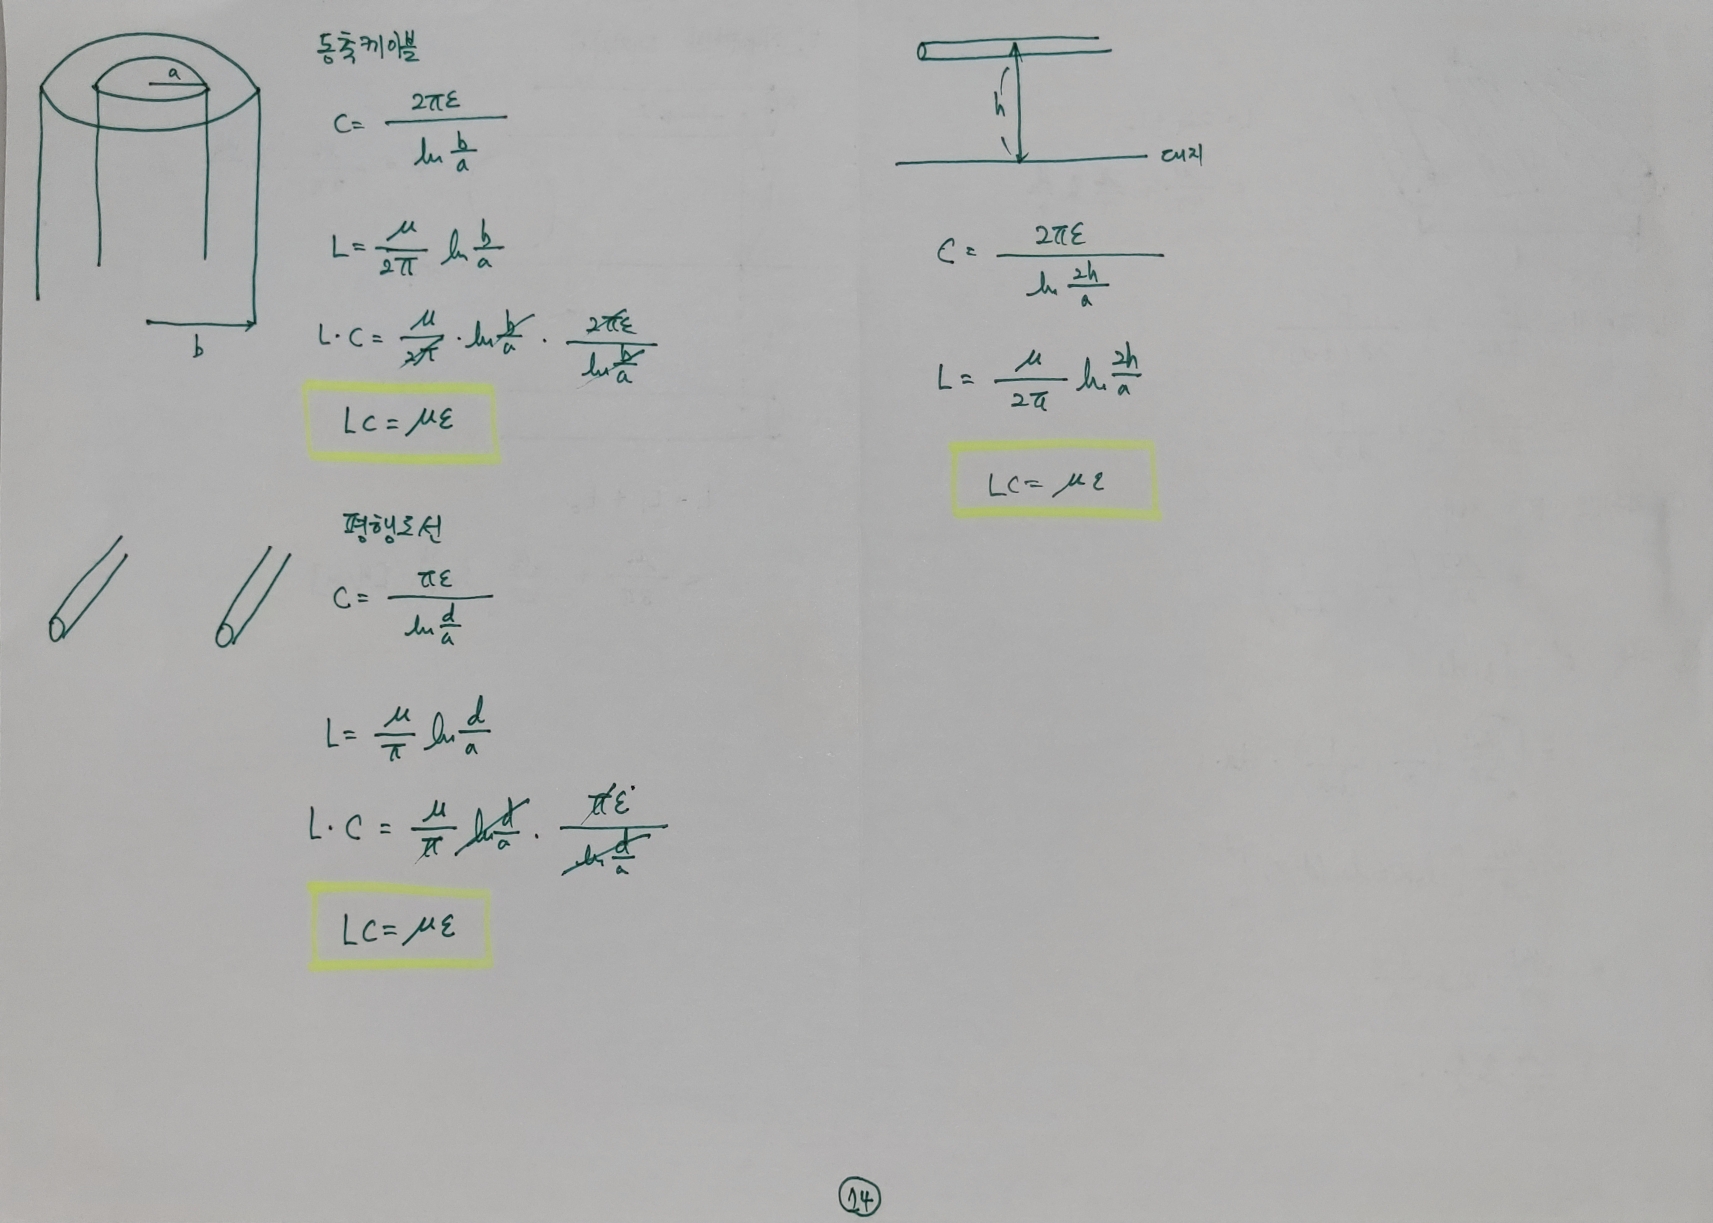 동축케이블
a
C = 2πε / ln b/a
L = μ/2π ln b/a
b
L·C = μ/2π · ln b/a · 2πε / ln b/a
LC = με
평행도선
C = πε / ln d/a
L = μ/π ln d/a
L·C = μ/π ln d/a · πε / ln d/a
LC = με
h
대지
C = 2πε / ln 2h/a
L = μ/2π ln 2h/a
LC = με
24